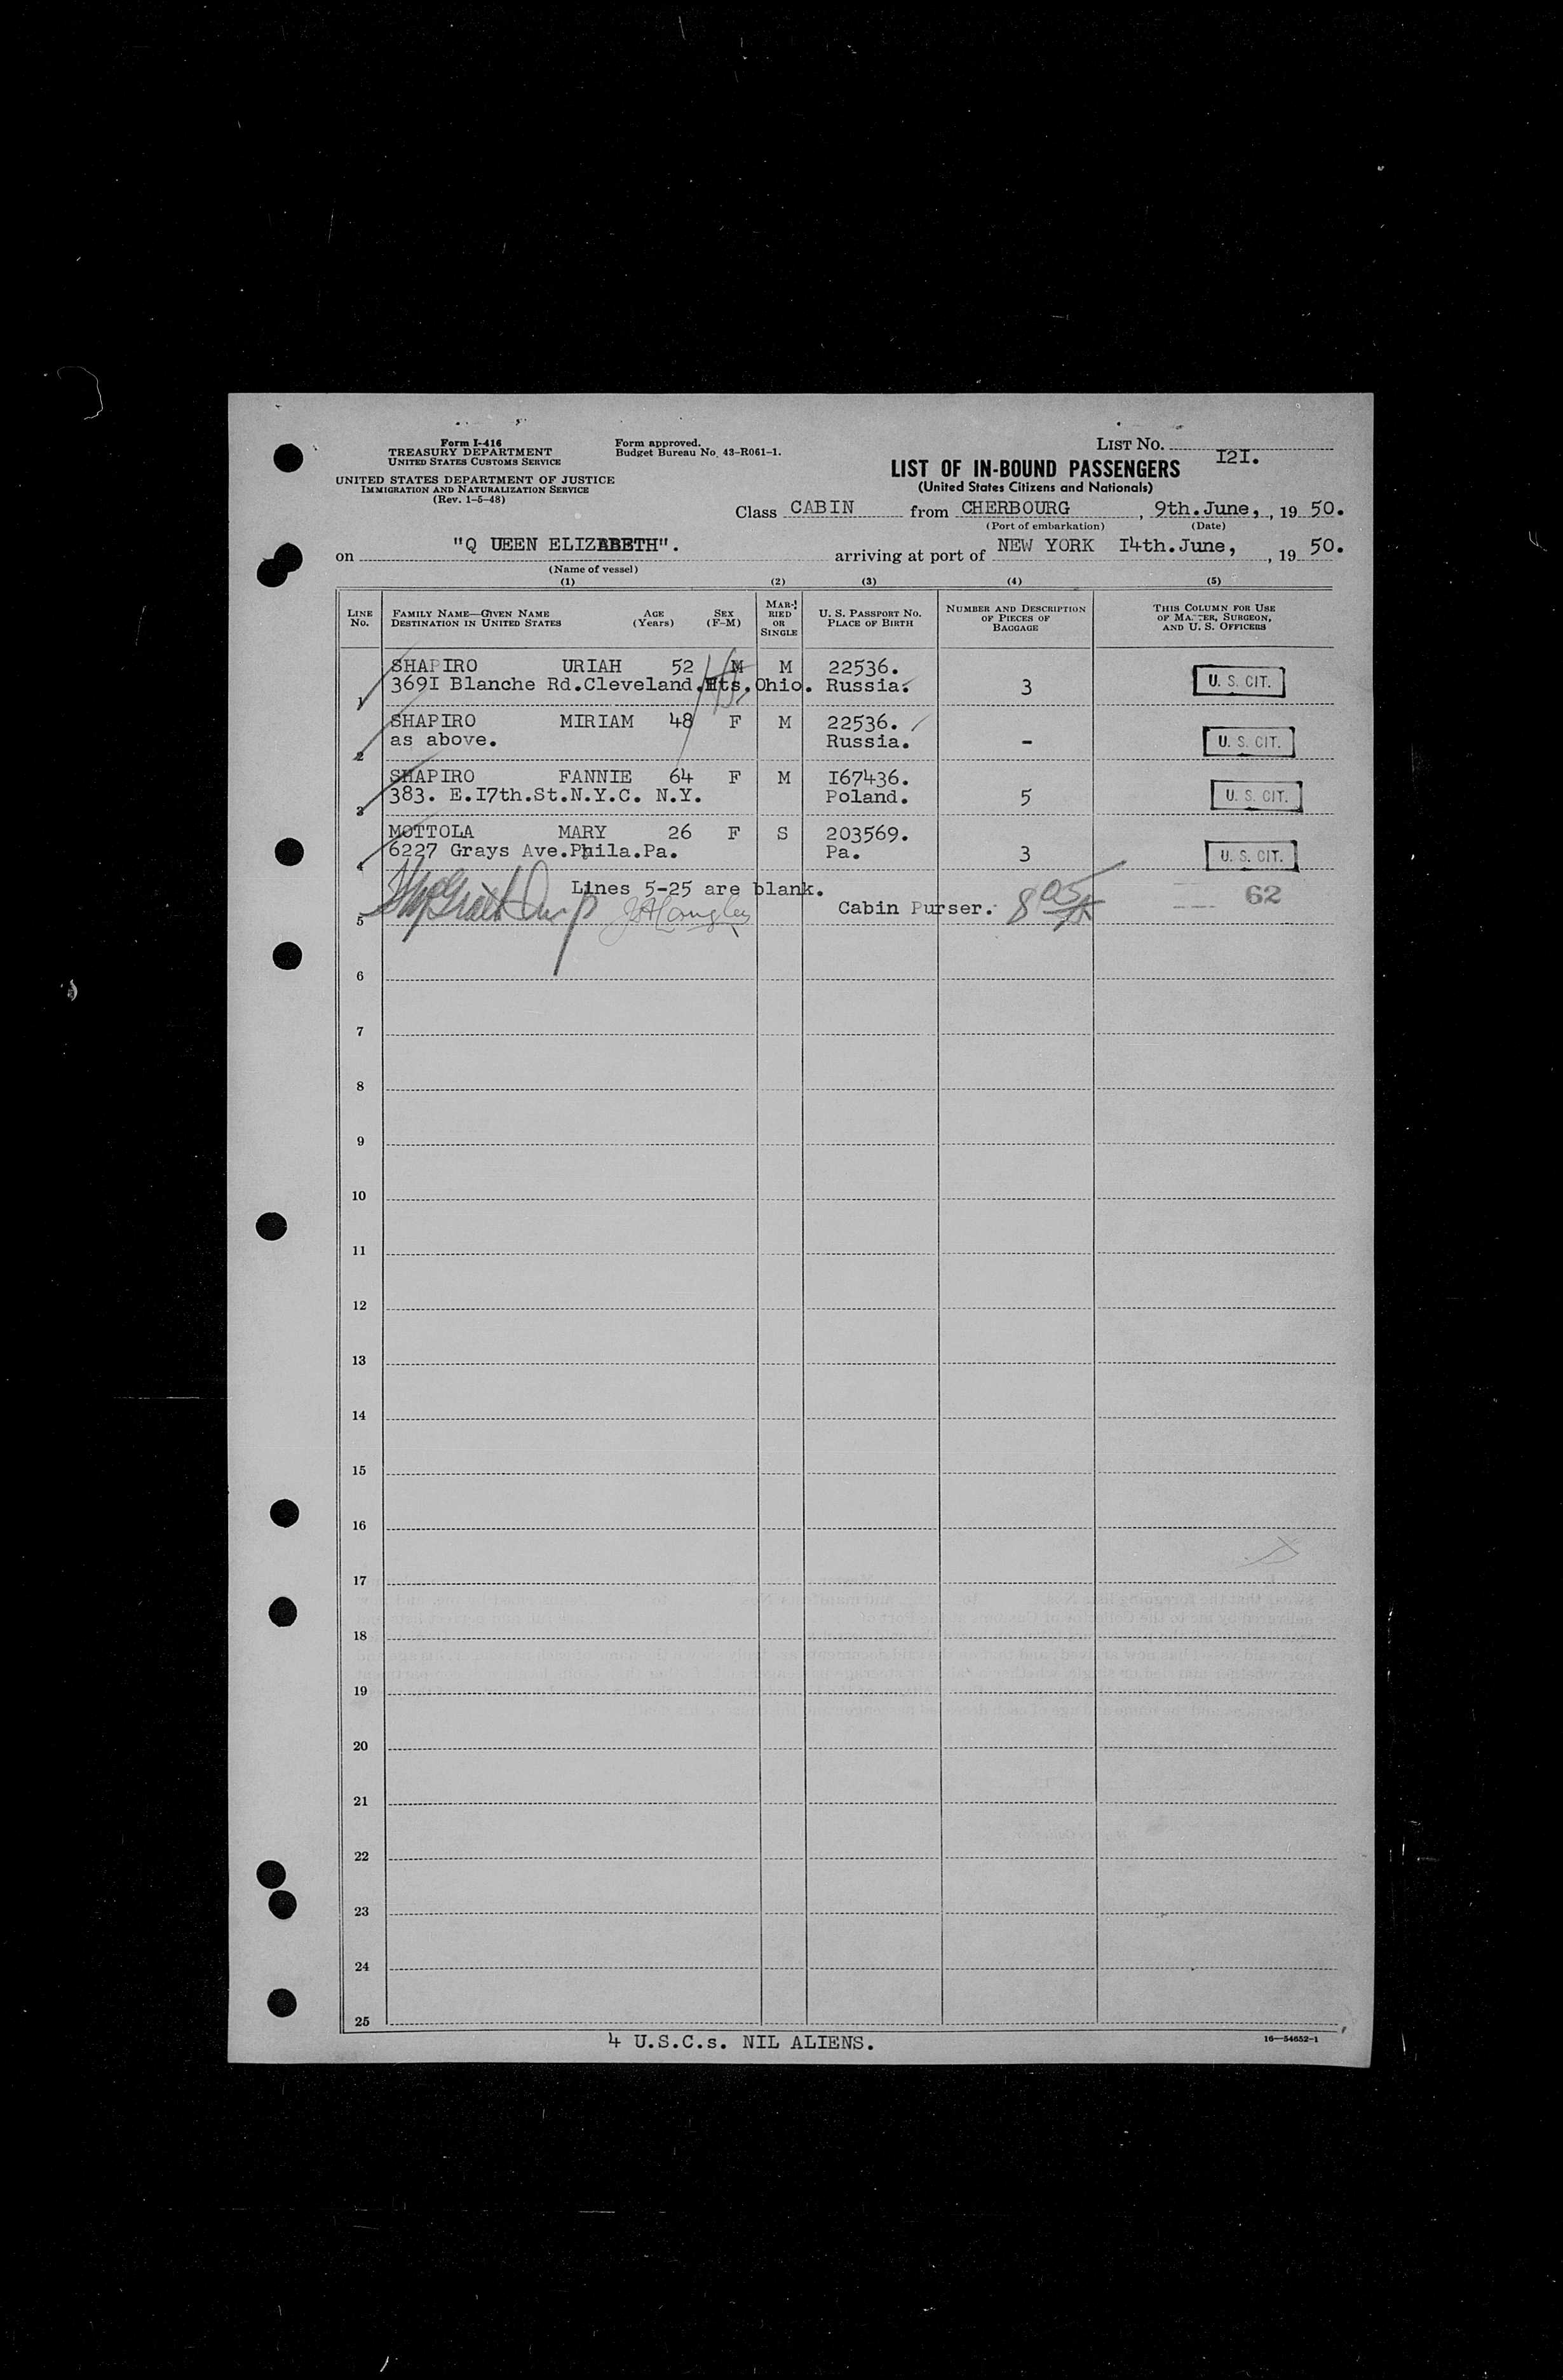 Form I-416
TREASURY DEPARTMENT
UNITED STATES CUSTOMS SERVICE
UNITED STATES DEPARTMENT OF JUSTICE
IMMIGRATION AND NATURALIZATION SERVICE
(Rev. 1-5-48)
Form approved.
Budget Bureau No. 43-R061-1.
LIST NO. I2I.
LIST OF IN-BOUND PASSENGERS
(United States Citizens and Nationals)
Class CABIN from CHERBOURG, 9th.June,, 19 50.
(Port of embarkation) (Date)
on "Q UEEN ELIZABETH". arriving at port of NEW YORK I4th.June, , 19 50.
(Name of vessel)
(1) (2) (3) (4) (5)
LINE NO. FAMILY NAME—GIVEN NAME DESTINATION IN UNITED STATES AGE (Years) SEX (F-M) MARRIED OR SINGLE U. S. PASSPORT NO. PLACE OF BIRTH NUMBER AND DESCRIPTION OF PIECES OF BAGGAGE THIS COLUMN FOR USE OF MASTER, SURGEON, AND U. S. OFFICERS
SHAPIRO URIAH 52 M M 22536.
1 369I Blanche Rd.Cleveland.Hts.Ohio. Russia. 3 U. S. CIT.
SHAPIRO MIRIAM 48 F M 22536.
2 as above. Russia. - U. S. CIT.
SHAPIRO FANNIE 64 F M I67436.
3 383. E.I7th.St.N.Y.C. N.Y. Poland. 5 U. S. CIT.
MOTTOLA MARY 26 F S 203569.
4 6227 Grays Ave.Phila.Pa. Pa. 3 U. S. CIT.
Lines 5-25 are blank.
5 Cabin Purser. 62
6
7
8
9
10
11
12
13
14
15
16
17
18
19
20
21
22
23
24
25
4 U.S.C.s. NIL ALIENS.
16—54652-1